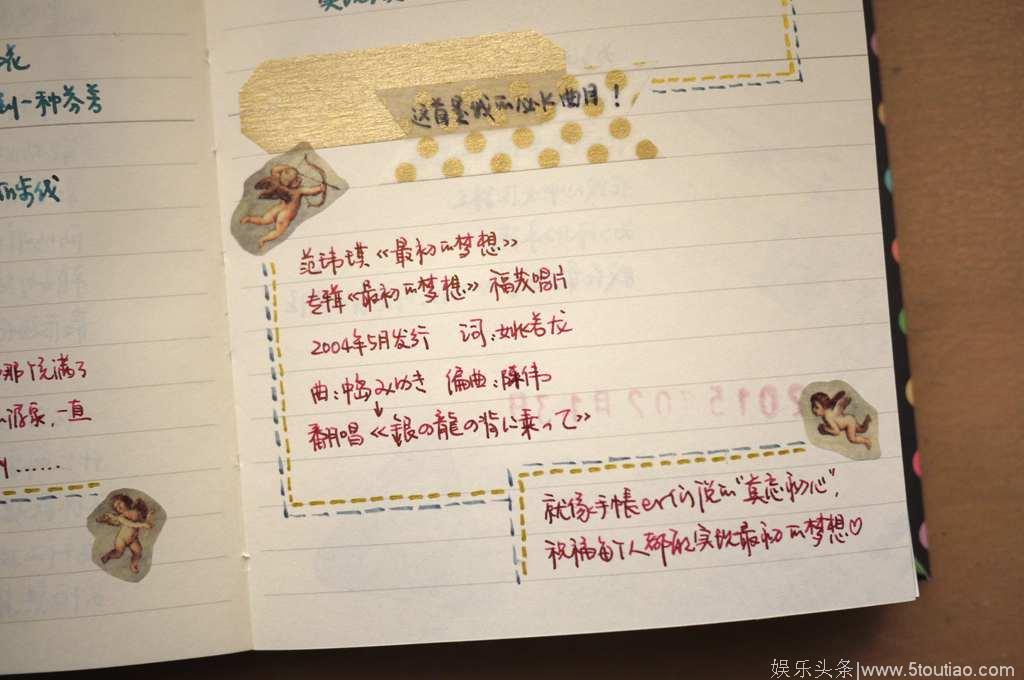 花
到一种芬芳
的步伐
那优满了
源泉,一直
……
这首是我的必长曲目!
范玮琪《最初的梦想》
专辑《最初的梦想》 福茂唱片
2004年5月发行 词:姚若龙
曲:中島みゆき 编曲:陈伟
翻唱《銀の龍の背に乗って》
2015 07月13日
就像手帐er们说的“莫忘初心”,
祝福每个人都能实现最初的梦想♡
娱乐头条|www.5toutiao.com